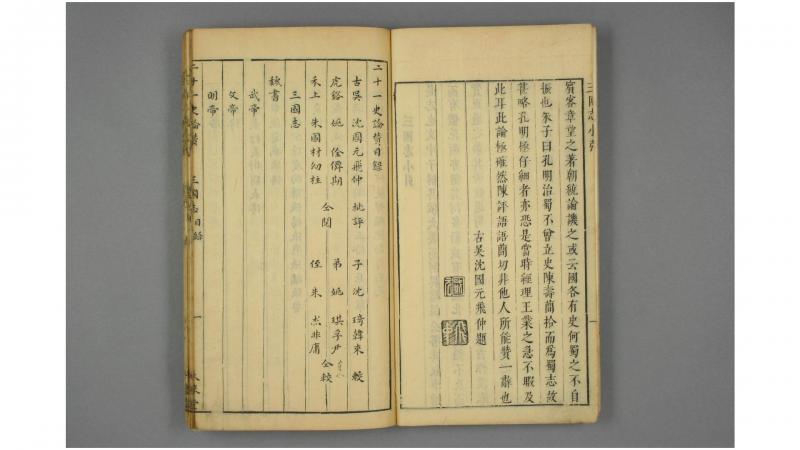 三國志小引
賓客章望之著朝統論譏之或云國各有史何蜀之不自
振也朱子曰孔明治蜀不曾立史陳壽蕳拾而爲蜀志故
甚略孔明極仔細者亦恐是當時經理王業之急不暇及
此耳此論極確然陳評語語蕳切非他人所能贊一辭也
古吳沈國元飛仲題
二十一史論贊目錄
古吳 沈國元飛仲 批評 子 沈 琦韓來 較
虎谿 姚 佺儕期 仝閱 弟 姚 琪孚尹 仝較
禾上 朱國材幼柱 侄 朱 杰非庸
三國志
魏書
武帝
文帝
明帝
二十一史論贊 三國志目錄 一